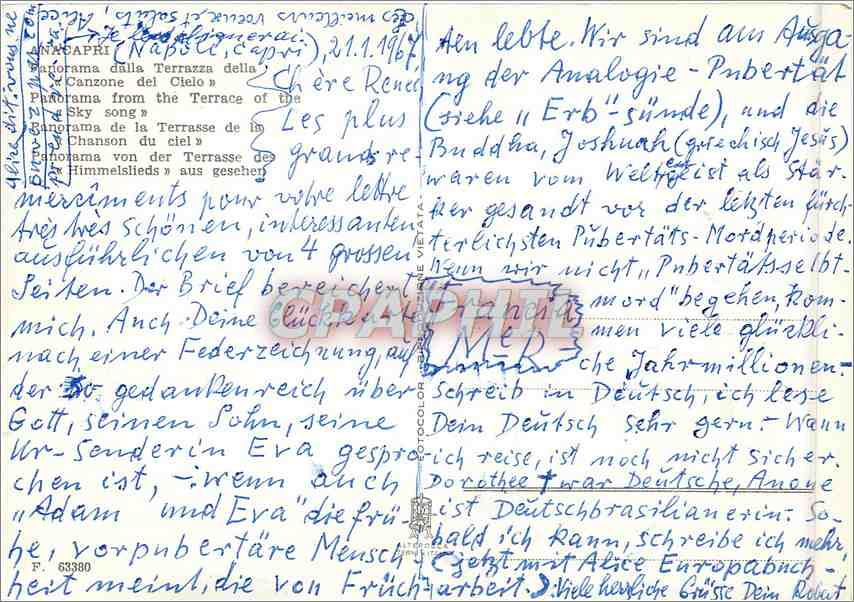 des meilleurs voeux et saluts, Alice
ANACAPRI
(Napoli, Capri), 21.1.1967
Panorama dalla Terrazza della
« Canzone del Cielo »
Panorama from the Terrace of the
« Sky song »
Panorama de la Terrasse de la
« Chanson du ciel »
Panorama von der Terrasse des
« Himmelslieds » aus gesehen
Chère Renée,
Les plus
grands re-
merciments pour votre lettre
très très schönen, interessanten
ausführlichen von 4 grossen
Seiten. Der Brief bereichert
mich. Auch Deine Glückkarte
nach einer Federzeichnung, auf
der so gedankenreich über
Gott, seinen Sohn, seine
Ur-Senderin Eva gespro
chen ist, - wenn auch
"Adam und Eva" die frü-
he, vorpubertäre Mensch-
heit meint, die von Früch-
F. 63380
ten lebte. Wir sind am Ausga-
ng der Analogie-Pubertät
(siehe "Erb"-sünde), und die
Buddha, Joshuah (griechisch Jesus)
waren vom Weltgeist als Stär-
ker gesandt vor der letzten fürch-
terlichsten Pubertäts-Mordperiode.
Wenn wir nicht "Pubertätsselbt-
mord" begehen, kom-
men viele glückli-
che Jahrmillionen.-
Schreib in Deutsch, ich lese
Dein Deutsch sehr gern.- Wann
ich reise, ist noch nicht sicher.
Dorothee † war Deutsche, Anoue
ist Deutschbrasilianerin.- So-
bald ich kann, schreibe ich mehr,
(jetzt mit Alice Europabuch-
arbeit.) Viele herzliche Grüsse Dein Robert
GRAPHIL